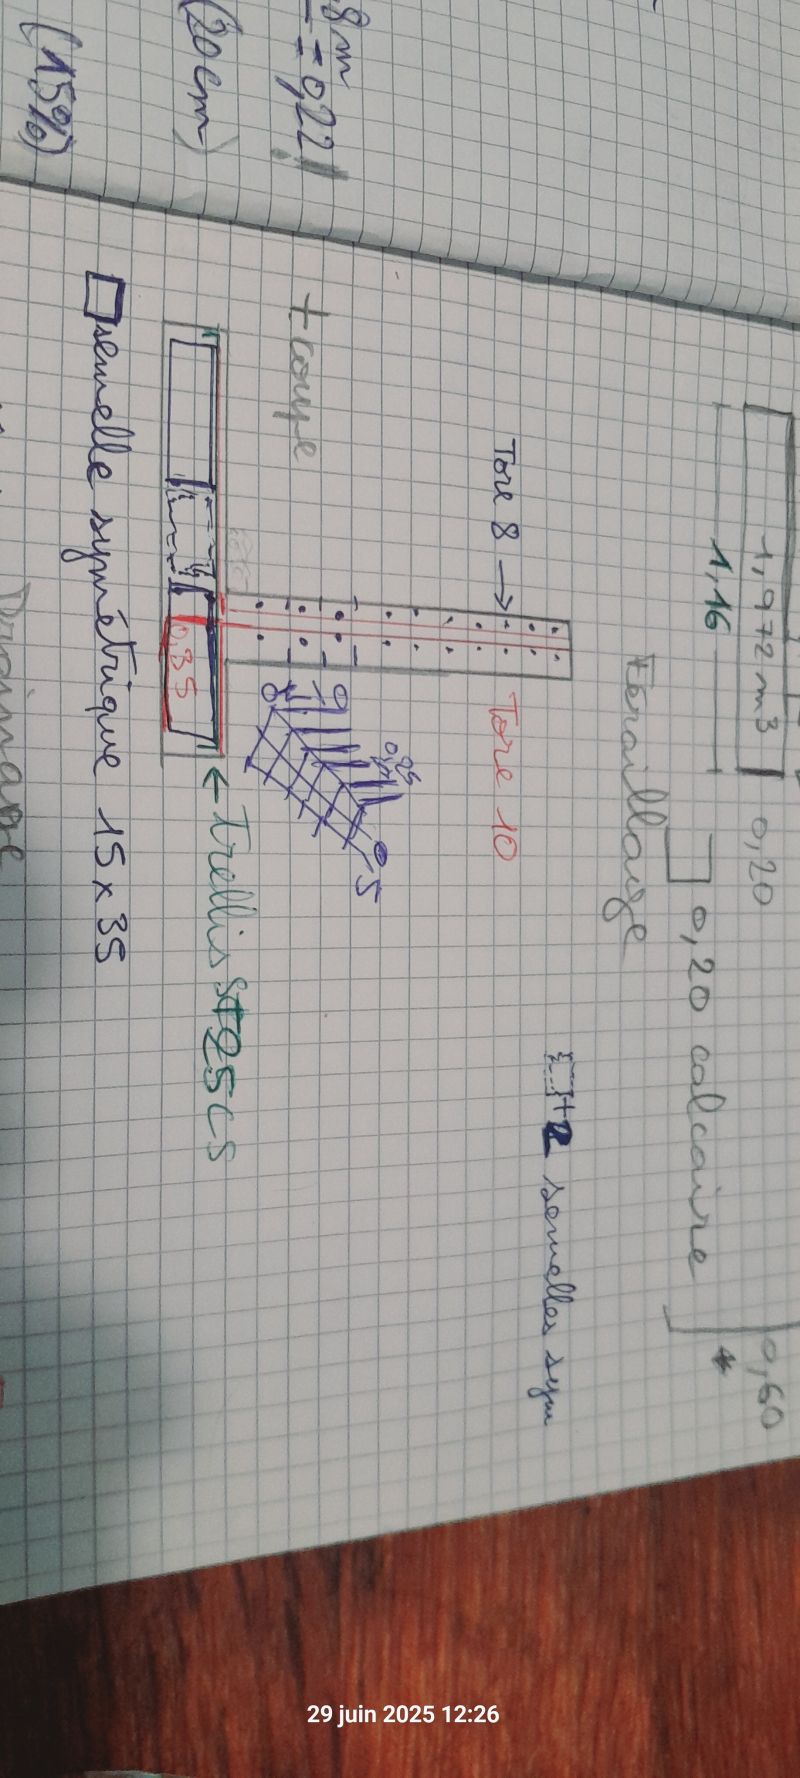 8m
= 0,22
(20cm)
(15%)
1,972 m3
0,20
0,60
1,16
0,20 calcaire
Feraillage
+2 semelles sym
Tore 8 →
Tore 10
+ coupe
0,35
← Trellis ST25CS
semelle symétrique 15 x 35
29 juin 2025 12:26